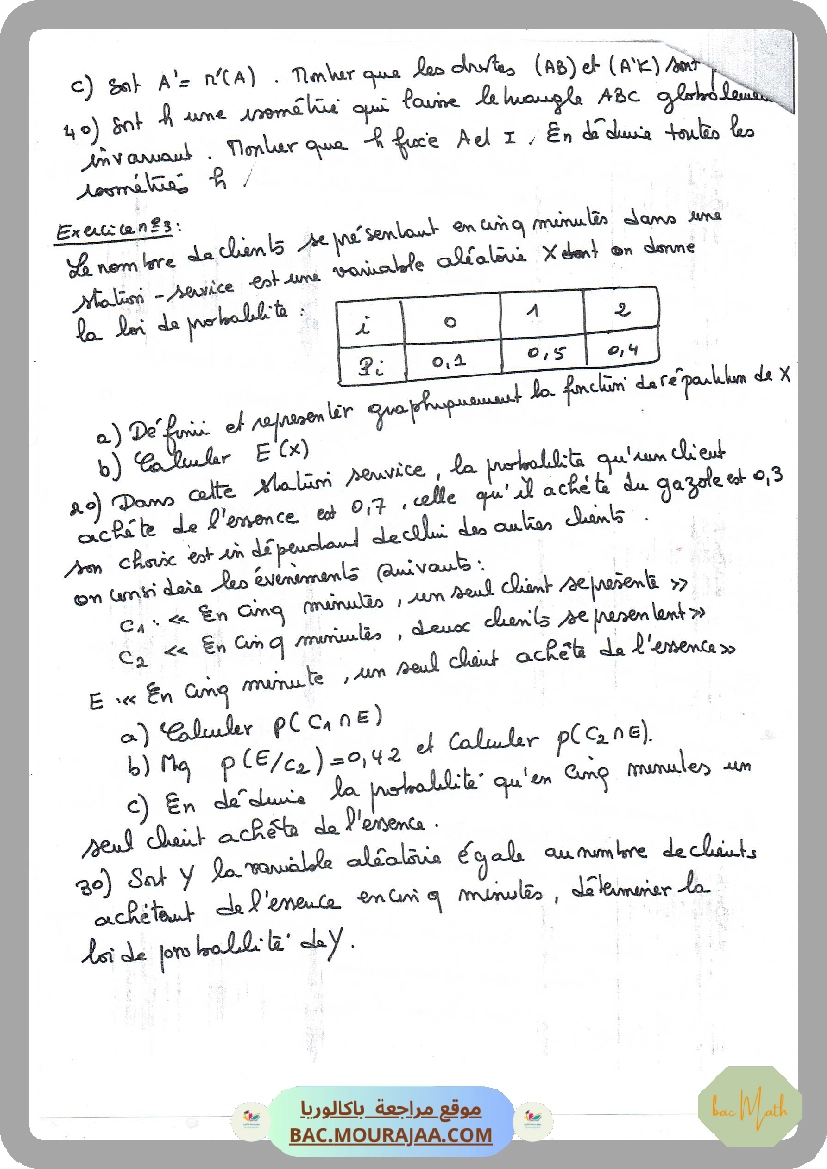 c) Soit A'= r'(A) . Montrer que les droites (AB) et (A'K) sont
4o) Soit h une isométrie qui laisse le triangle ABC globalement
invariant . Montrer que h fixe A et I . En déduire toutes les
isométries h .
Exercice n°3 :
Le nombre de clients se présentant en cinq minutes dans une
station - service est une variable aléatoire X dont on donne
la loi de probabilité :
i 0 1 2
Pi 0,1 0,5 0,4
a) Définir et représenter graphiquement la fonction de répartition de X
b) Calculer E(X)
2o) Dans cette station service, la probabilité qu'un client
achète de l'essence est 0,7 , celle qu'il achète du gazole est 0,3
son choix est indépendant de celui des autres clients .
on considère les évènements suivants :
C1 : « En cinq minutes, un seul client se présente »
C2 « En cinq minutes, deux clients se présentent »
E : « En cinq minute, un seul client achète de l'essence »
a) Calculer p(C1 ∩ E)
b) Mq p(E/C2) = 0,42 et Calculer p(C2 ∩ E).
c) En déduire la probabilité qu'en cinq minutes un
seul client achète de l'essence .
3o) Soit Y la variable aléatoire égale au nombre de clients
achetant de l'essence en cinq minutes, déterminer la
loi de probabilité de Y .
موقع مراجعة باكالوريا
BAC.MOURAJAA.COM
bac Math